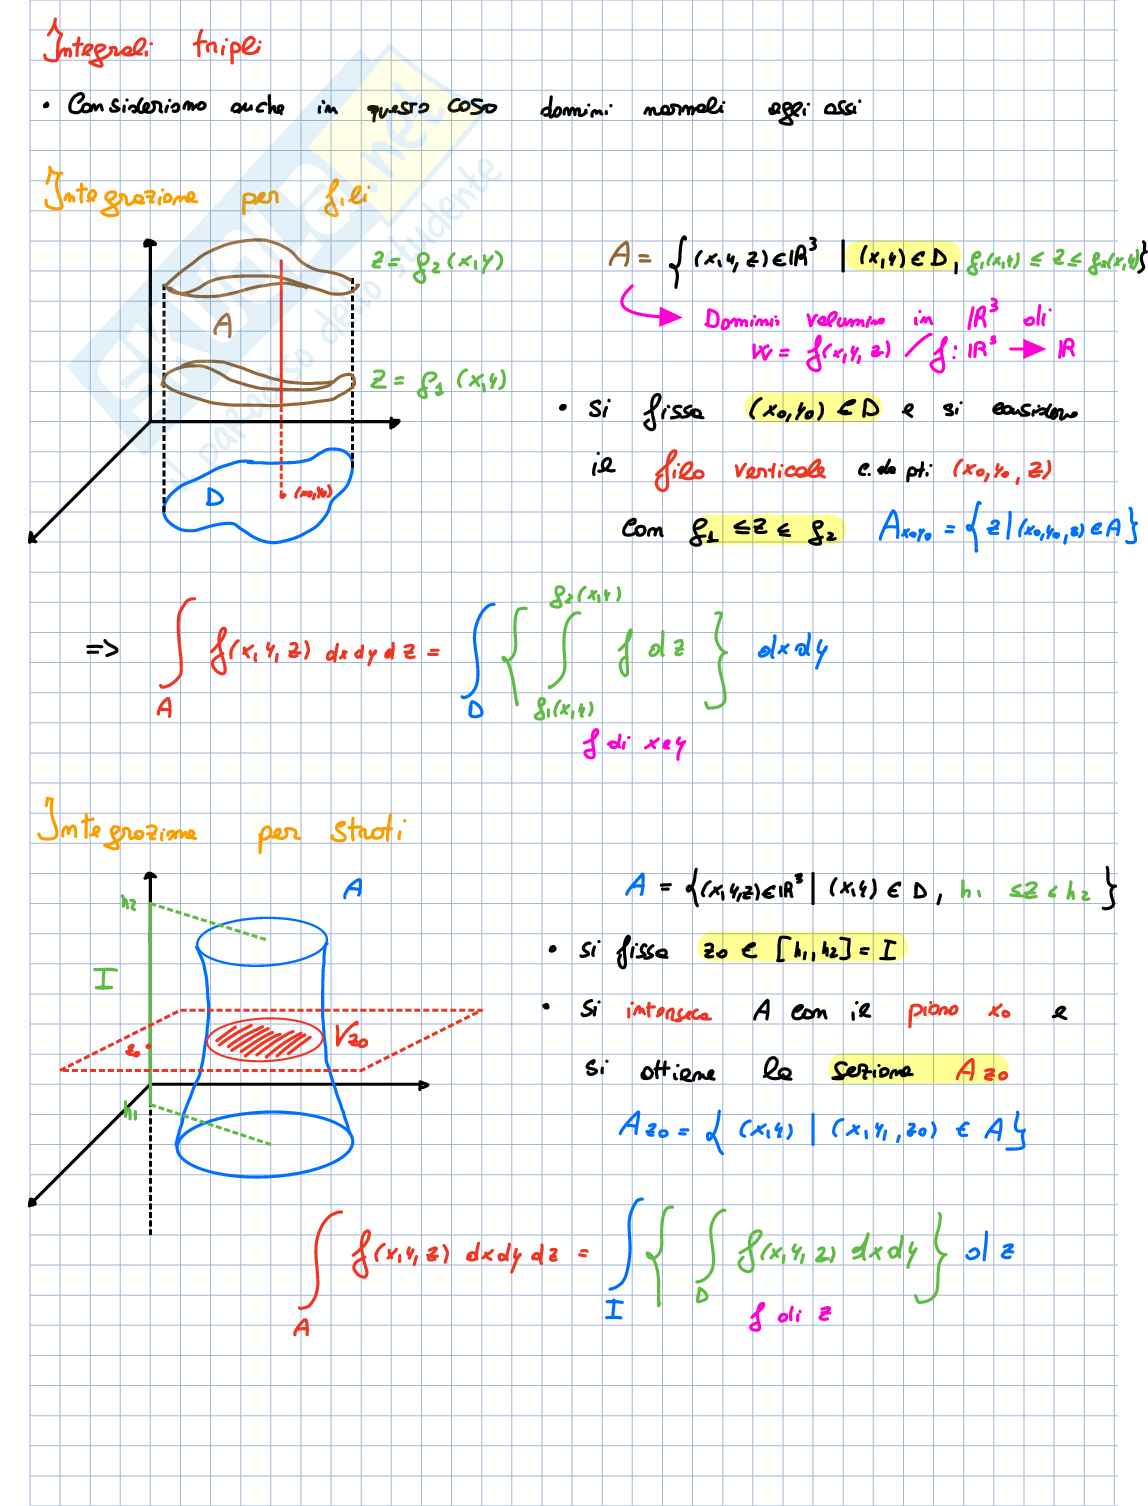 Integrali tripli
• Consideriamo anche in questo caso domini normali agli assi
Integrazione per fili
z = g₂(x,y)
A
z = g₁(x,y)
D
(x₀,y₀)
A = { (x,y,z) ∈ ℝ³ | (x,y) ∈ D, g₁(x,y) ≤ z ≤ g₂(x,y) }
Dominii volumino in ℝ³ di
w = f(x,y,z) / f: ℝ³ → ℝ
• Si fissa (x₀,y₀) ∈ D e si considera
il filo verticale c. da pti (x₀,y₀,z)
con g₁ ≤ z ≤ g₂ A x₀y₀ = { z | (x₀,y₀,z) ∈ A }
=> ∫_A f(x,y,z) dx dy dz = ∫_D { ∫_{g₁(x,y)}^{g₂(x,y)} f dz } dx dy
f di x e y
Integrazione per strati
h₂
A
I
z₀
V z₀
h₁
A = { (x,y,z) ∈ ℝ³ | (x,y) ∈ D, h₁ ≤ z ≤ h₂ }
• si fissa z₀ ∈ [h₁,h₂] = I
• Si interseca A con il piano x₀ e
si ottiene la sezione A z₀
A z₀ = { (x,y) | (x,y,z₀) ∈ A }
∫_A f(x,y,z) dx dy dz = ∫_I { ∫_D f(x,y,z) dx dy } dz
f di z
SKUOLA.net
il paradiso dello studente